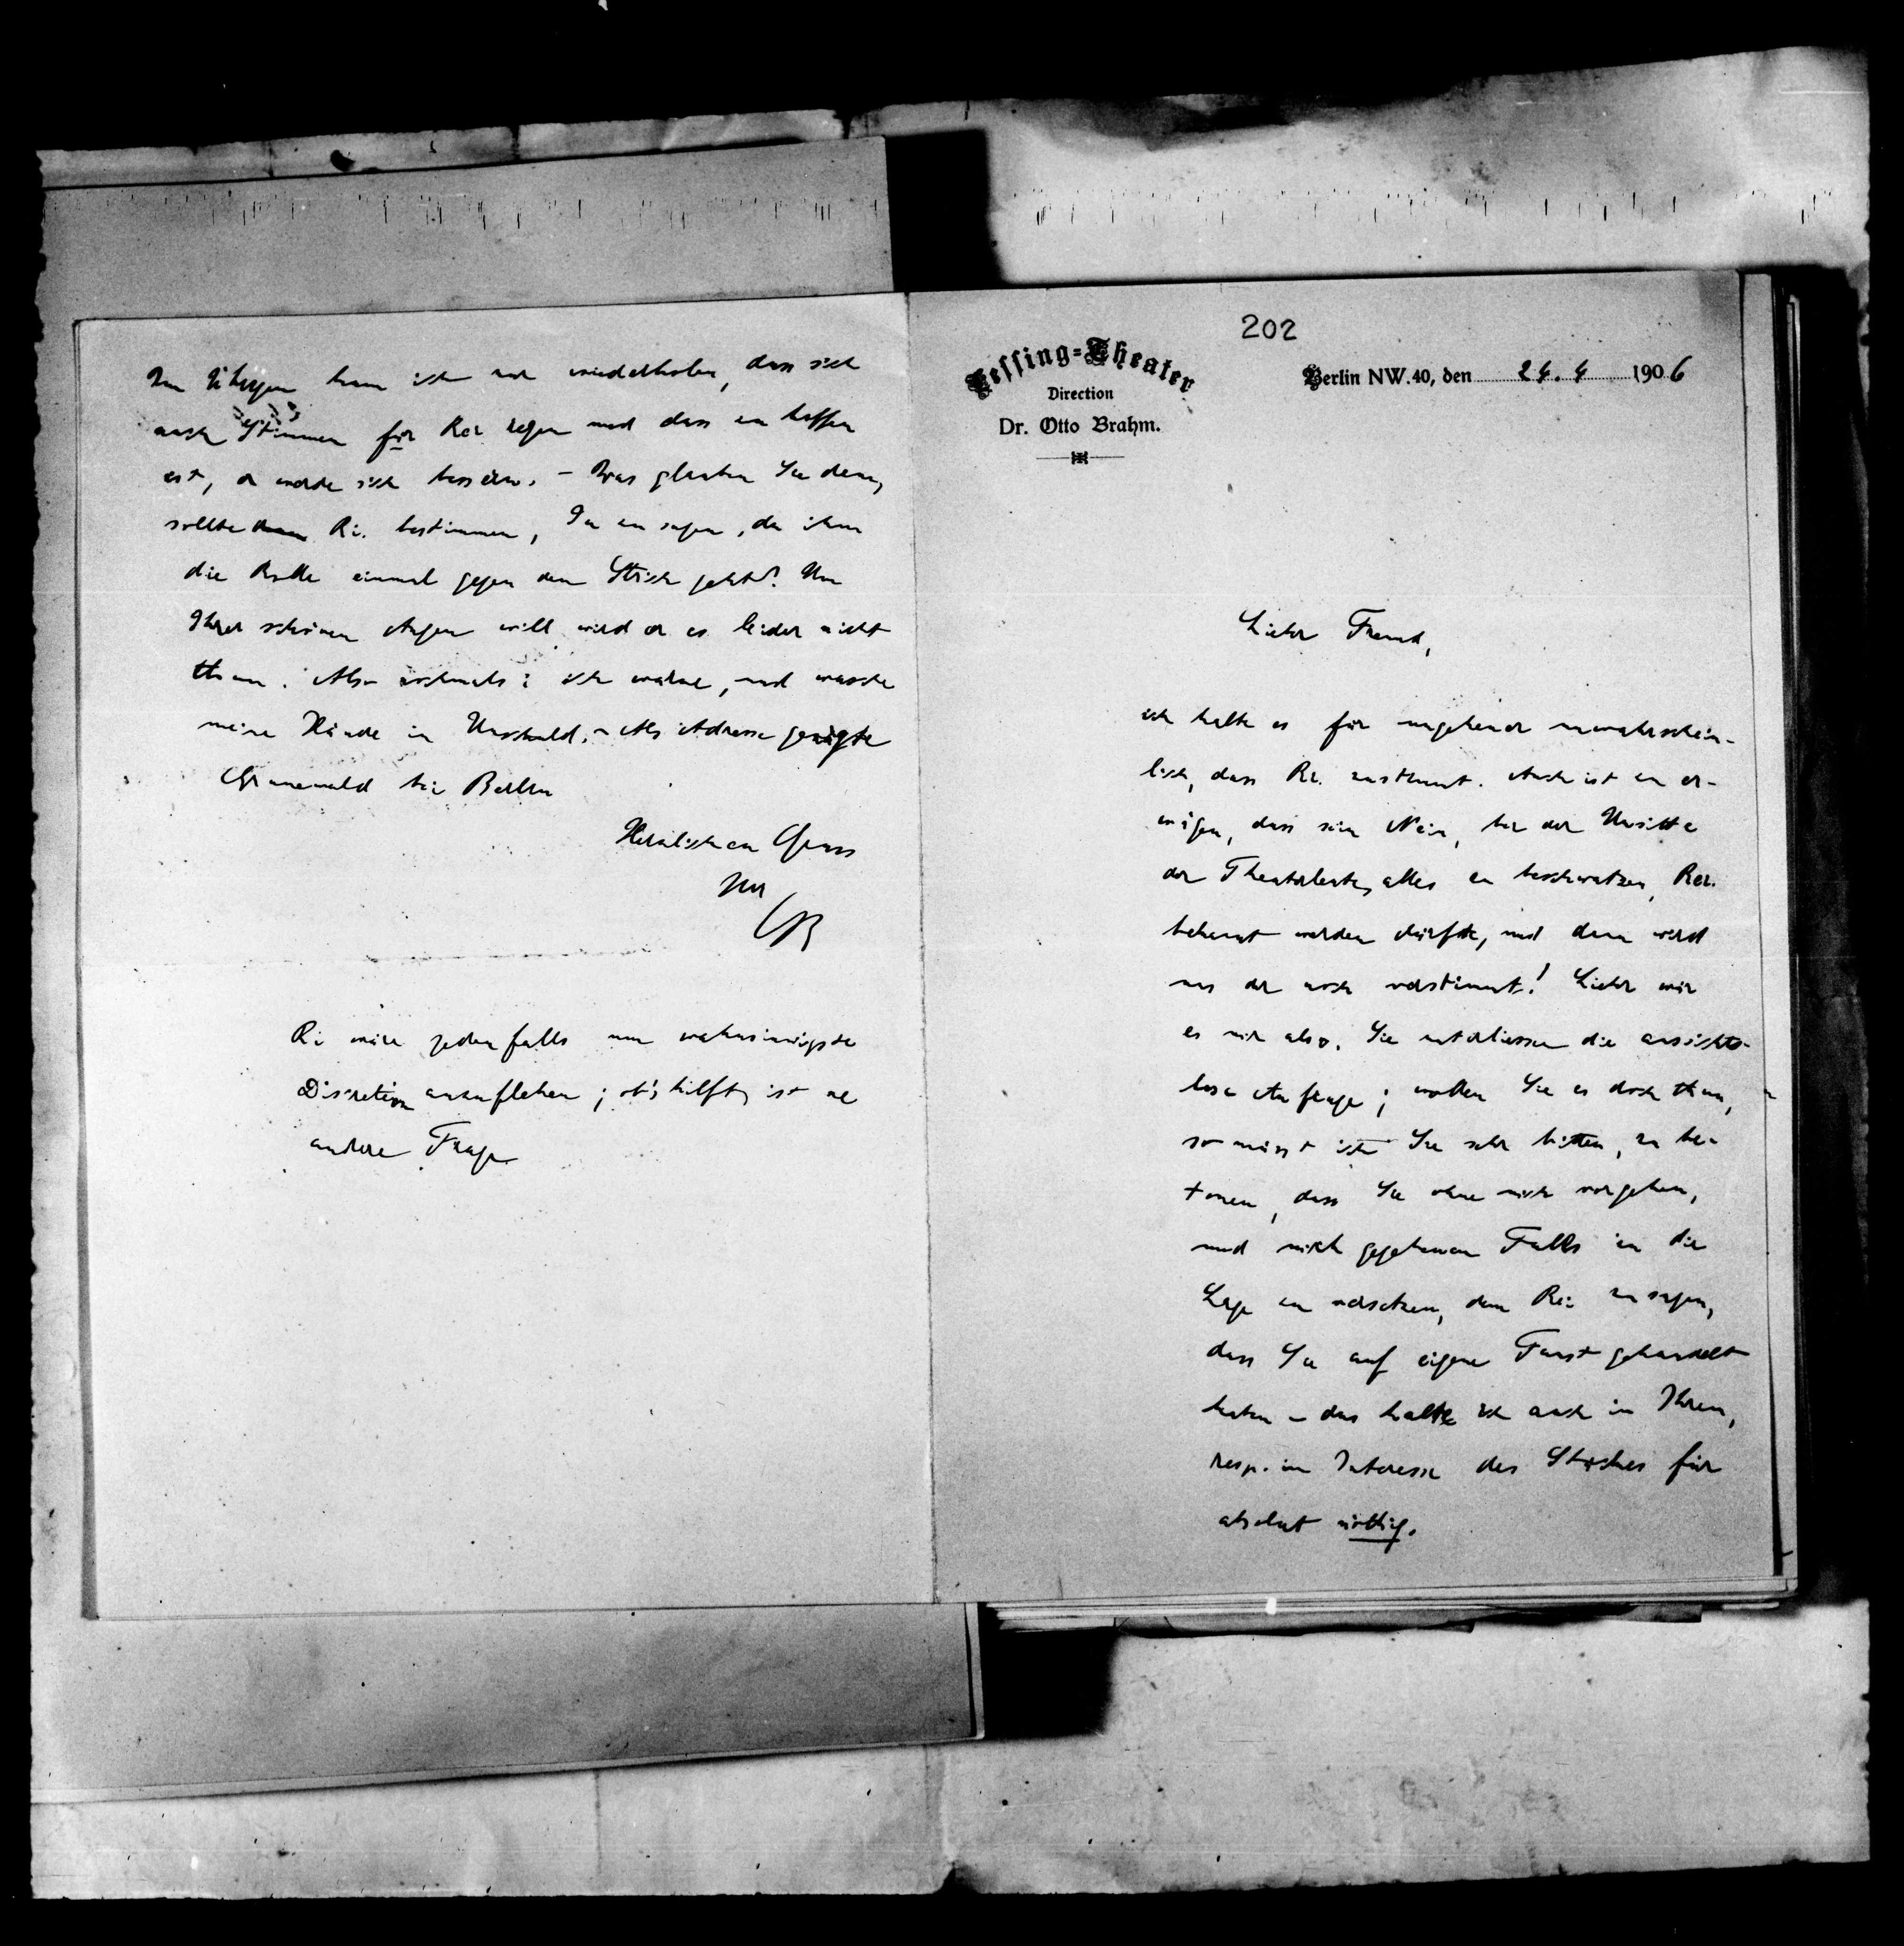 202
Lessing-Theater
Direction
Dr. Otto Brahm.
Berlin NW. 40, den 24.4 1906
Lieber Freund,
ich halte es für ungeheuer unwahrschein-
lich, dass Ri. zustimmt. Auch ist zu er-
wägen, dass sein Nein, bei der Unsitte
der Theaterleute, alles zu beschwatzen, Rei.
bekannt werden dürfte, und dann wird
uns der noch verstimmt! Lieber wär
es mir also, Sie unterliessen die aussichts-
lose Anfrage; wollen Sie es doch thun,
so müsst ich Sie sehr bitten, zu be-
tonen, dass Sie ohne mich vorgehen,
und mich gegebenen Falls in die
Lage zu versetzen, dem Rei. zu sagen,
dass Sie auf eigene Faust gehandelt
haben – das halte ich auch in Ihrem,
resp. im Interesse des Stückes für
absolut nöthig.
Im Übrigen kann ich nur wiederholen, dass sich
auch Stimmen für Rei. regen und dass zu hoffen
ist, er werde sich bessern. – Was glauben Sie denn,
sollte Ri. bestimmen, Ja zu sagen, da ihm
die Rolle einmal gegen den Strich geht? Um
Ihrer schönen Augen will wird er es leider nicht
thun. Also nochmals: ich warne, und wasche
meine Hände in Unschuld. – Als Adresse genügte
Grunewald bei Berlin
Herzlichen Gruss
Ihr
OB
Ri wäre jedenfalls um wahnsinnigste
Discretion anzuflehen; ob's hilft, ist ne
andere Frage